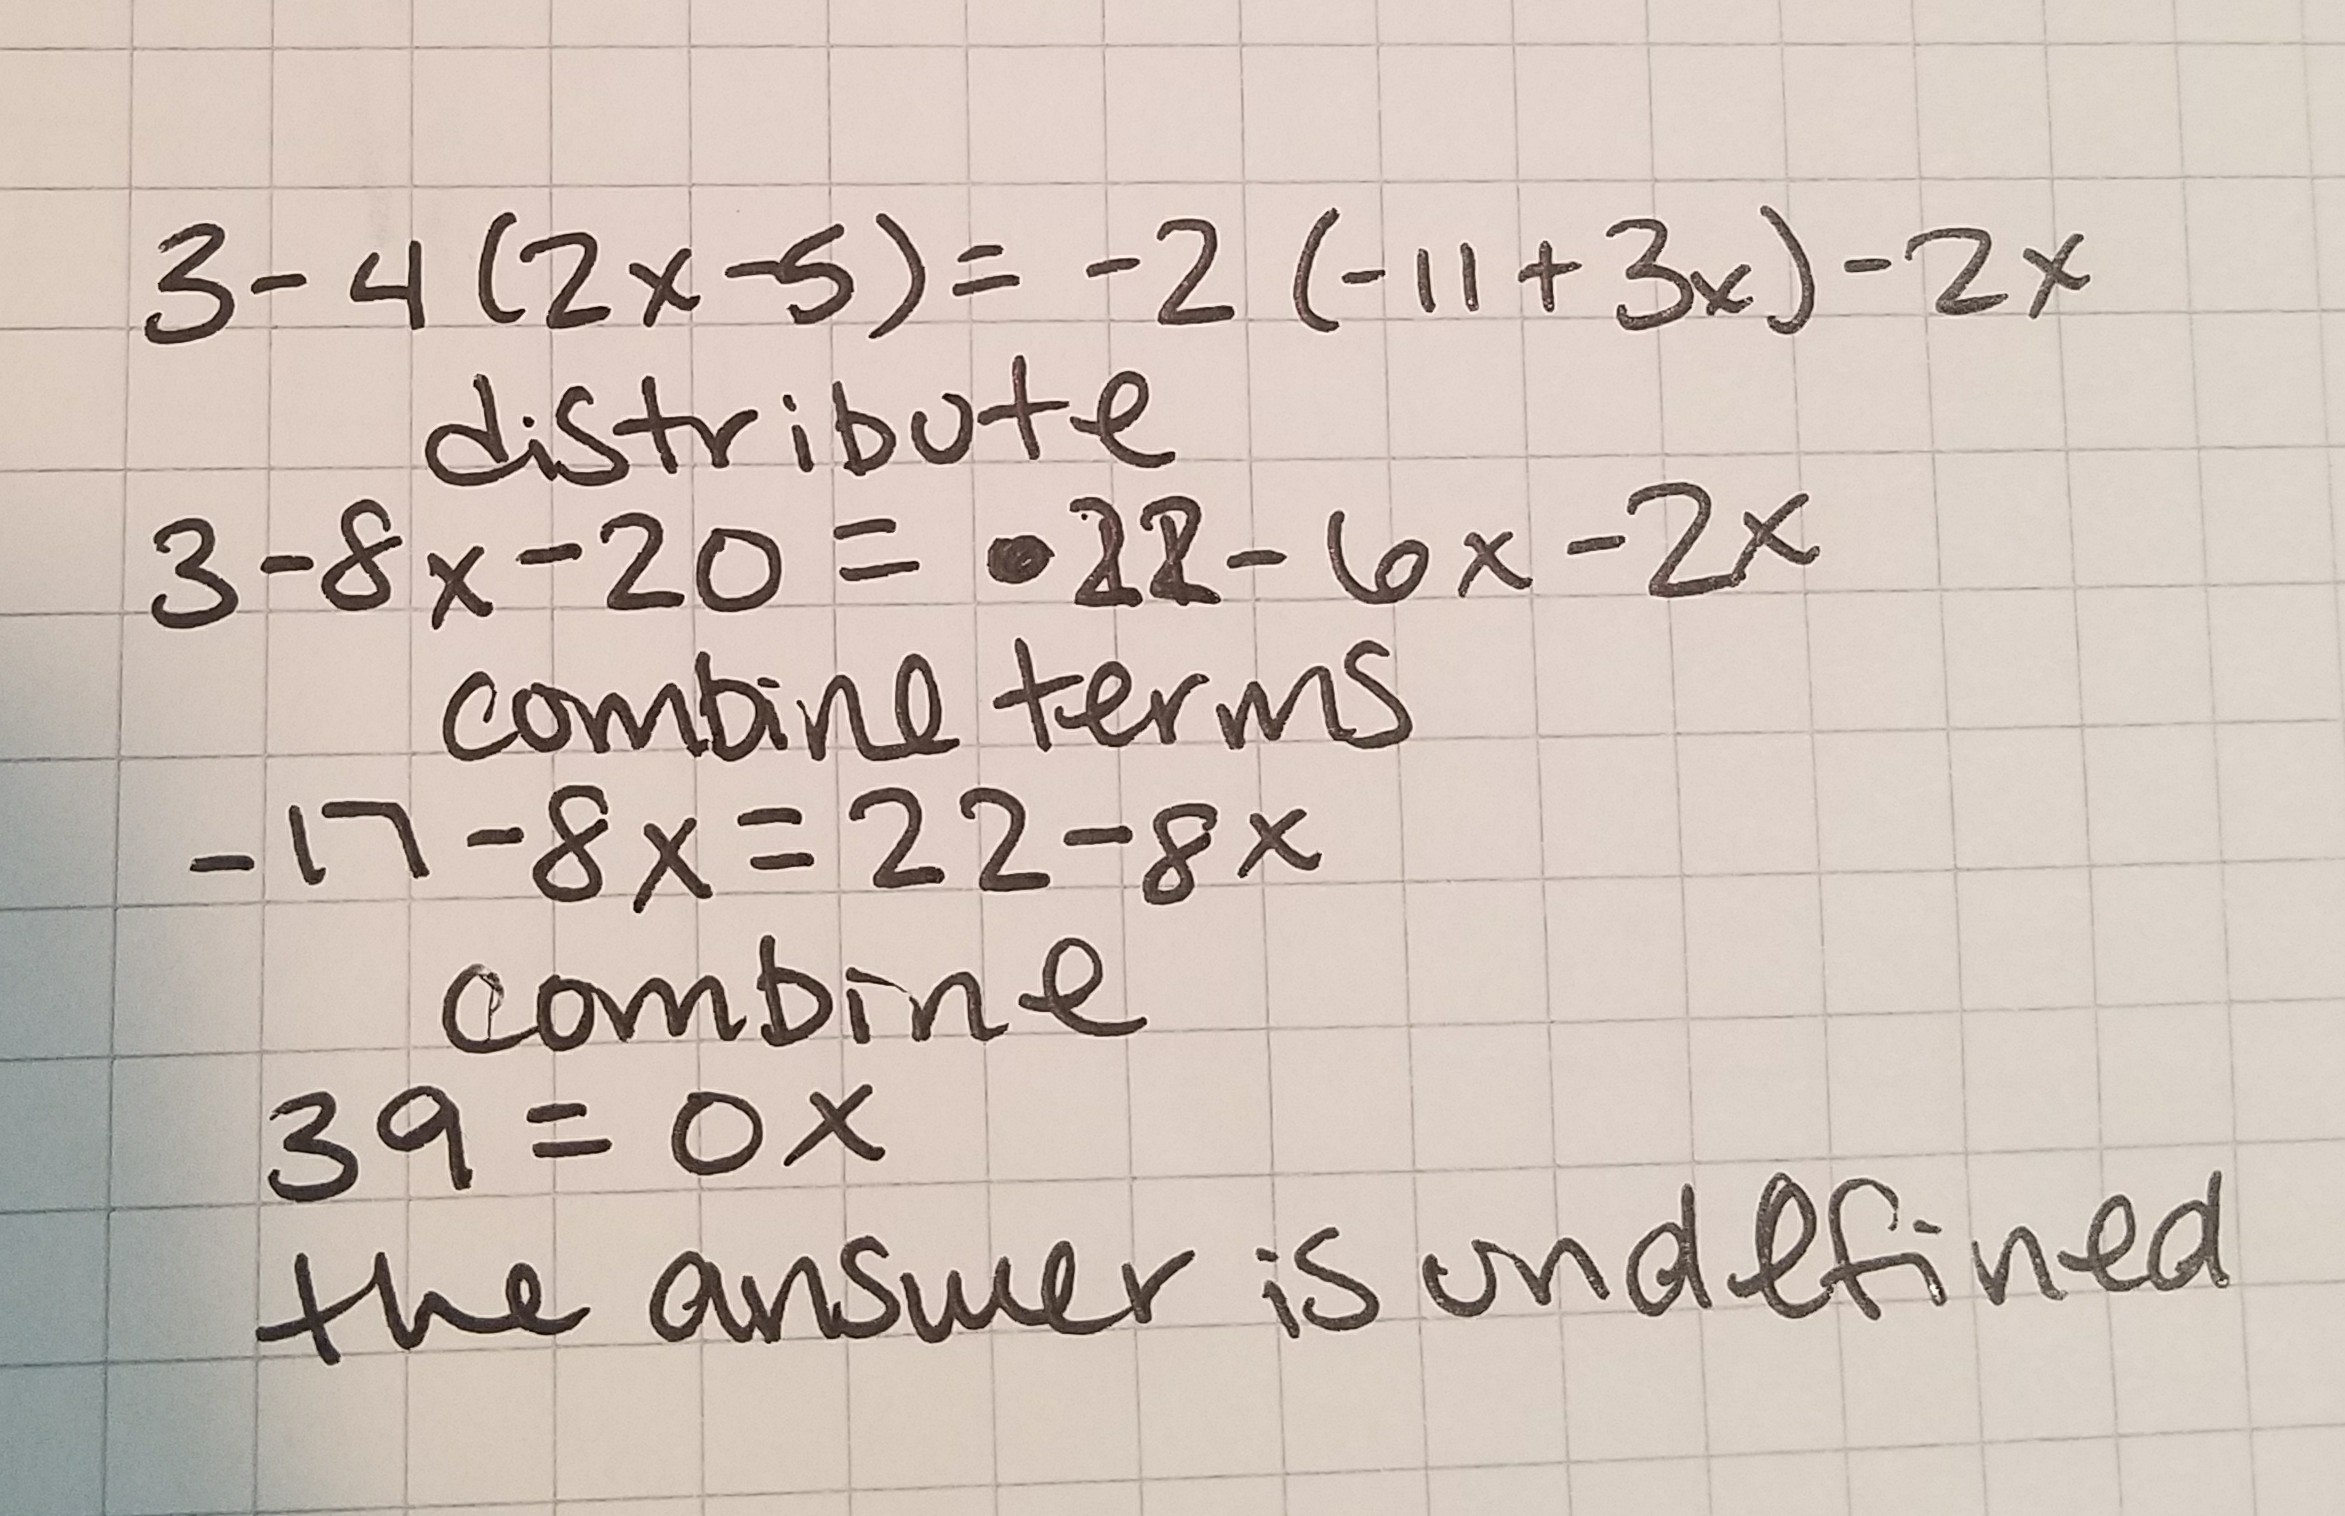 3-4(2x-5)= -2(-11+3x)-2x
distribute
3-8x-20= 22-6x-2x
combine terms
-17-8x=22-8x
combine
39=0x
the answer is undefined